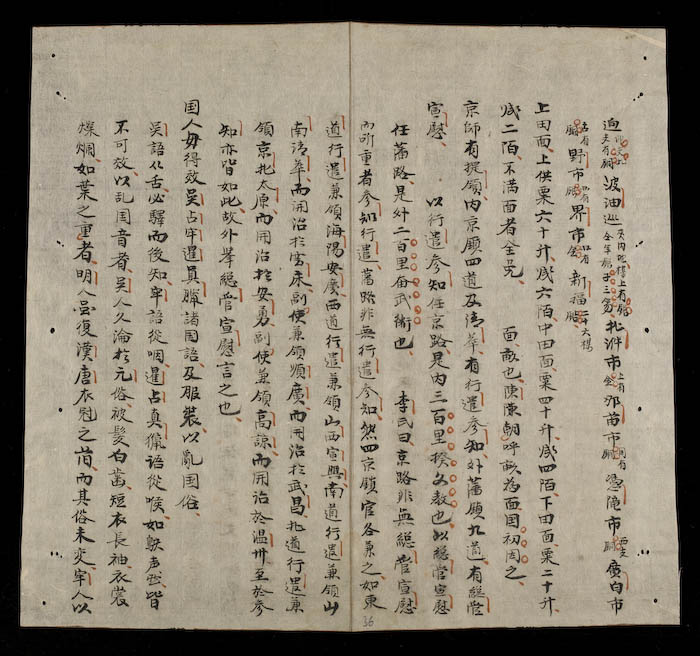 波油 北洲市 那苗市 市 廣白市
野市 界市 新福
上田面上供粟六十升 六陌中田面粟四十升 四陌下田面粟二十升
二陌不滿面者全免 面畝也陳陳朝呼畝為面国初因之
京師有提領內京鎮四道及清華有行遣參知外藩鎮九道有総管
宣慰 以行遣參知任京路是內三百里揆文教也以総管宣慰
任藩路是外二百里奋武衛也 李氏曰京路非無総管宣慰
而所重者參知行遣藩路非無行遣參知然四京鎮官各兼之如東
道行遣兼領海陽安廣西道行遣兼領山西宣興南道行遣兼領山
南清華而開治於 床副使兼領順廣而開治於武昌北道行遣兼
領京北太原而開治於安勇副使兼領高諒而開治於温州至於參
知亦皆如此故外舉総管宣慰言之也
国人毋得效吳占牢暹真臘諸国語及服裝以亂国俗
吳語化舌必驛而後知牢語從咽暹占真獵語從喉如鴃声然皆
不可效以乱国音者吳人久淪於元俗被髮白齒短衣長袖衣裳
燦爛如葉之重者明人虽復漢唐衣冠之旧而其俗未変牢人以
36